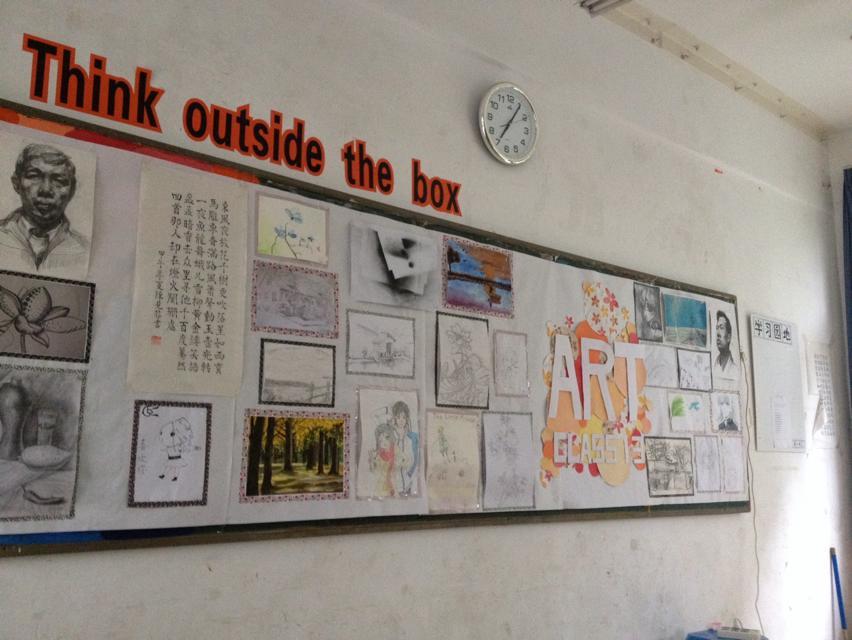 Think outside the box
東風夜放花千樹更吹落星如雨寶
馬雕車香滿路鳳簫聲動玉壺光轉
一夜魚龍舞蛾兒雪柳黃金縷笑語
盈盈暗香去眾里尋他千百度驀然
回首那人却在燈火闌珊處
ART
CLASS13
学习园地